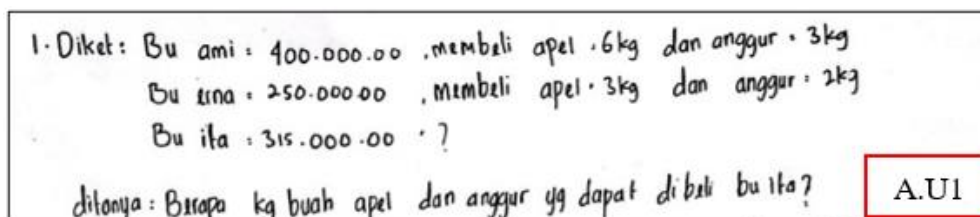 1. Diket : Bu ami = 400.000.00 , membeli apel = 6kg dan anggur = 3kg
Bu erna = 250.000.00 , membeli apel = 3kg dan anggur = 2kg
Bu ita = 315.000.00 = ?
ditanya : Berapa kg buah apel dan anggur yg dapat dibeli bu ita?
A.U1